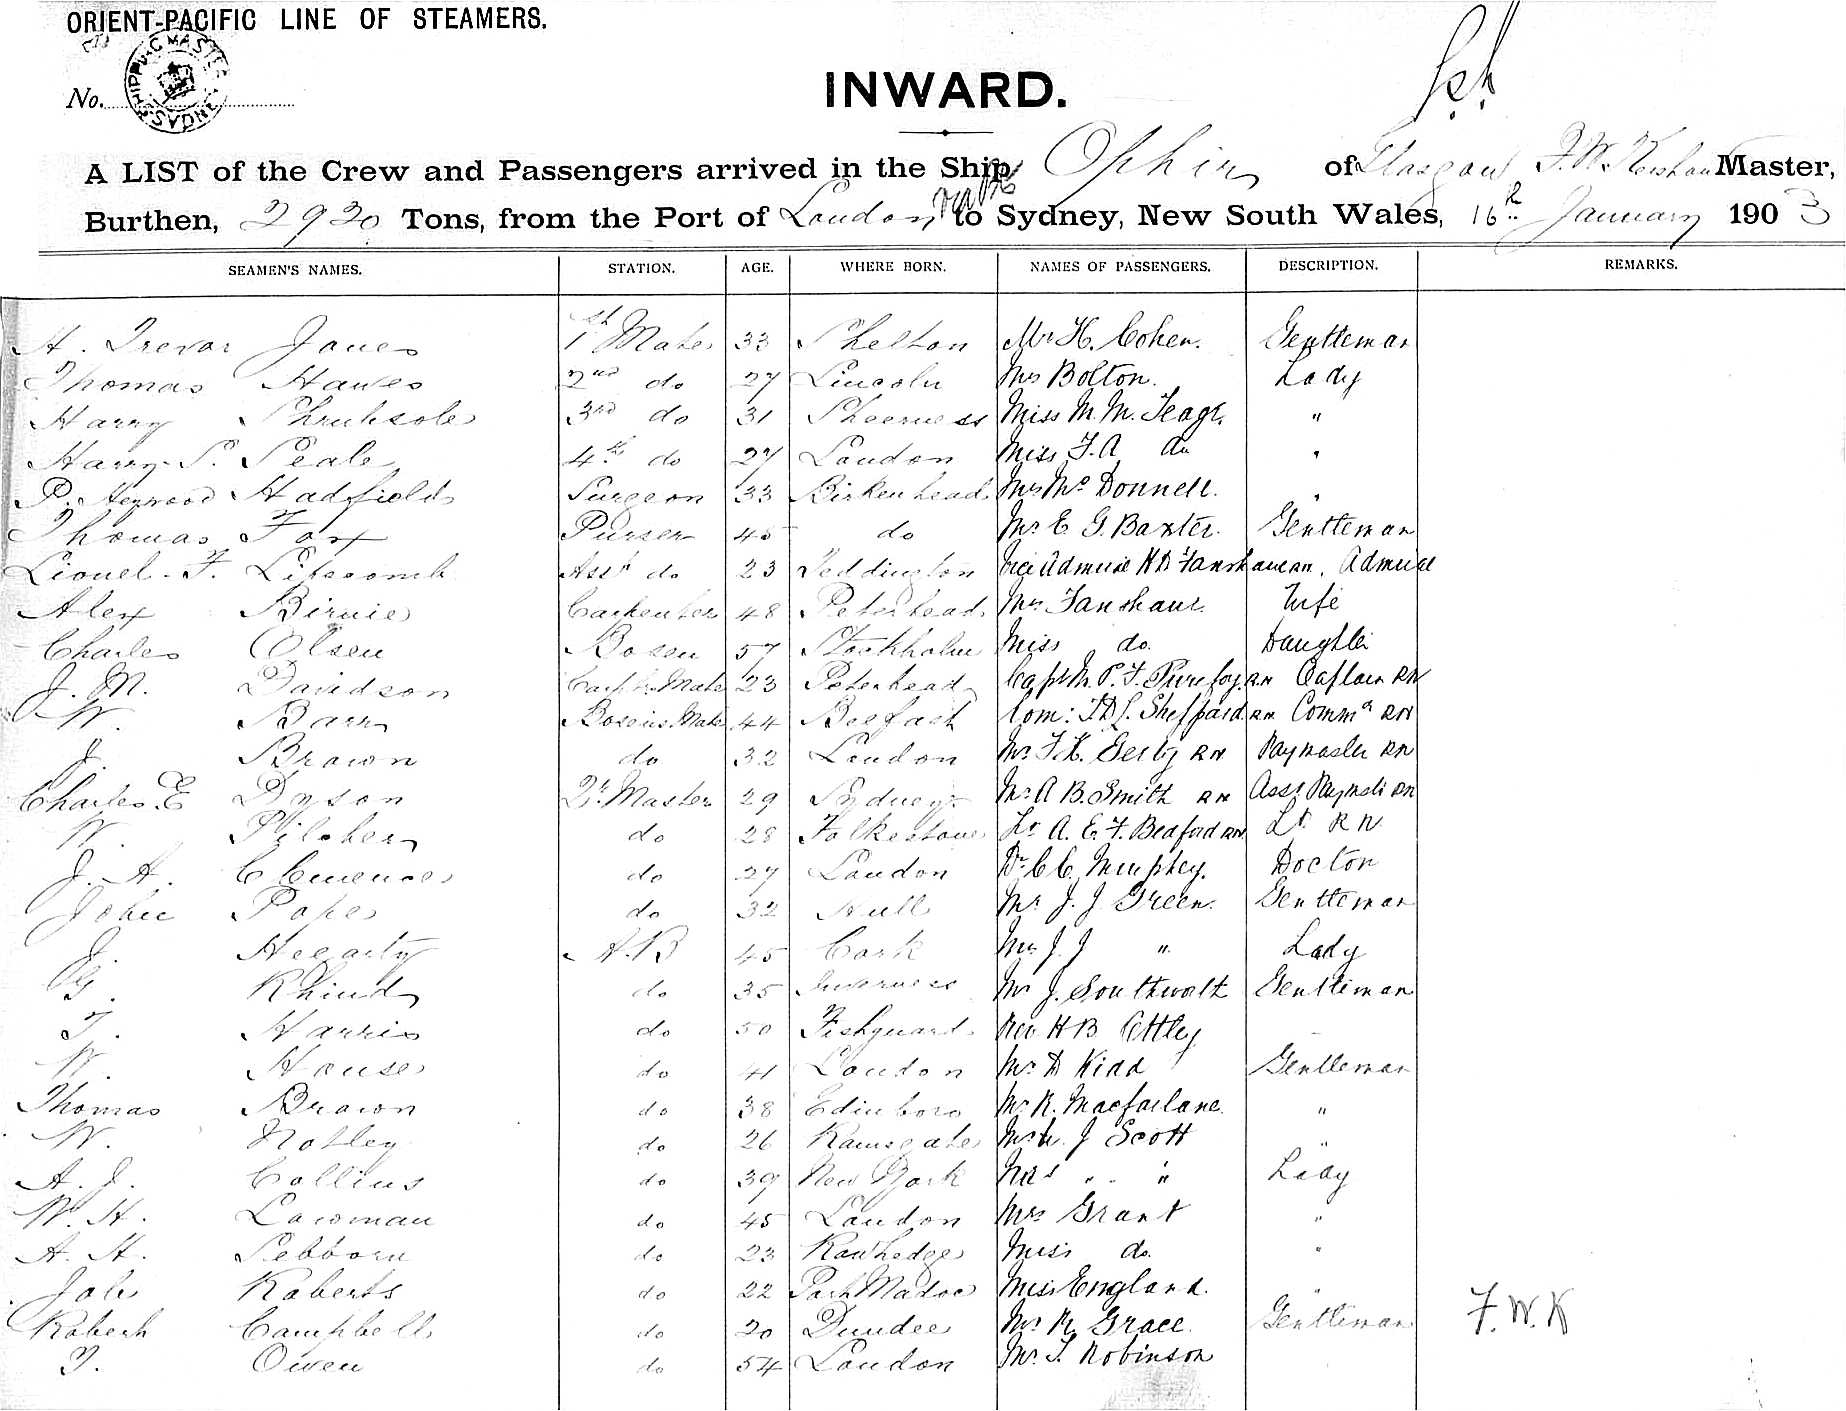 ORIENT-PACIFIC LINE OF STEAMERS.
No.
SHIPPING MASTER
INWARD.
A LIST of the Crew and Passengers arrived in the Ship Ophir of Glasgow F. W. Kershaw Master,
Burthen, 2920 Tons, from the Port of London to Sydney, New South Wales, 16th January 1903
SEAMEN'S NAMES. STATION. AGE. WHERE BORN. NAMES OF PASSENGERS. DESCRIPTION. REMARKS.
A. Trevor Jones 1st Mate 33 Shelton Mr H. Cohen. Gentleman
Thomas Hawes 2nd do 27 Lincoln Mrs Bolton. Lady
Harry Shrubsole 3rd do 31 Sheerness Miss M. M. Teage "
Harry S. Seale 4th do 27 London Miss F. A do "
P. Heywood Hadfield Surgeon 33 Birkenhead Mrs McDonnell. "
Thomas Fox Purser 45 do Mr E. G. Baxter. Gentleman
Lionel F. Lipscomb Asst do 23 Teddington Vice Admiral Fanshawe RN. Admiral
Alex Birnie Carpenter 48 Peterhead Mrs Fanshawe Wife
Charles Olsen Bosen 57 Stockholm Miss do. Daughter
J. M. Davidson Carp's Mate 23 Peterhead Capt P. F. Purefoy RN Captain RN
W. Barr Bosen's Mate 44 Belfast Com: Sheppard RN Commr RN
J. Brown do 32 London Mr RN Paymaster RN
Charles E Dyson Qr. Master 29 Sydney Mr A B. Smith RN Asst Paymstr RN
W. Pilcher do 28 Folkestone Lt A. E. F. Bedford RN Lt RN
J. A. Clemence do 27 London Dr C C. Murphey. Doctor
John Pope do 32 Hull Mr J. J Green. Gentleman
J. Hegarty A. B 45 Cork Mrs J. J " Lady
G. Rhind do 35 Inverness Mr J. Southwolt Gentleman
T. Harris do 50 Fishguard Rev H B Ottley
W. House do 41 London Mr D Kidd Gentleman
Thomas Brown do 38 Edinboro Mr R. Macfarlane "
W. Notley do 26 Ramsgate Mr J Scott "
A. J. Collins do 39 New York Mrs " " Lady
W. H. Lowman do 45 London Mrs Grant "
A. H. Sebborn do 23 Rowhedge Miss do. "
John Roberts do 22 Port Madoc Miss England. "
Robert Campbell do 20 Dundee Mr R. Grace. Gentleman F. W. K
T. Owen do 54 London Mr T. Robinson